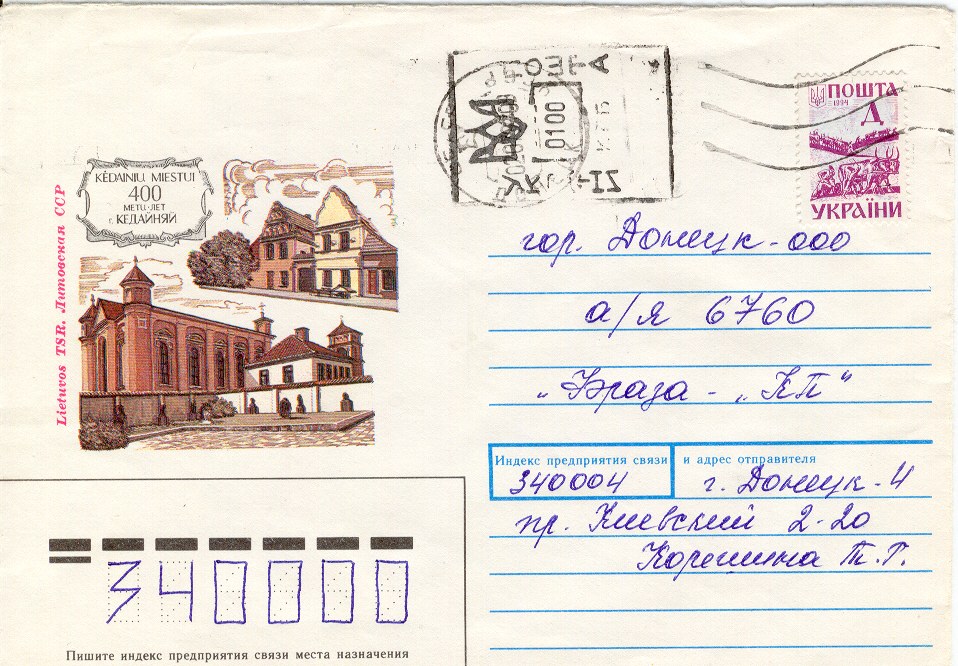 Lietuvos TSR. Литовская ССР
KĖDAINIŲ MIESTUI
400
METŲ·ЛЕТ
г. КЕДАЙНЯЙ
ПОШТА
1994
Д
УКРАЇНИ
0100
гор. Донецк-000
а/я 6760
„Фраза - „КП“
Индекс предприятия связи и адрес отправителя
340004 г. Донецк-4
пр. Киевский 2-20
Корешина Т.Г.
340000
Пишите индекс предприятия связи места назначения